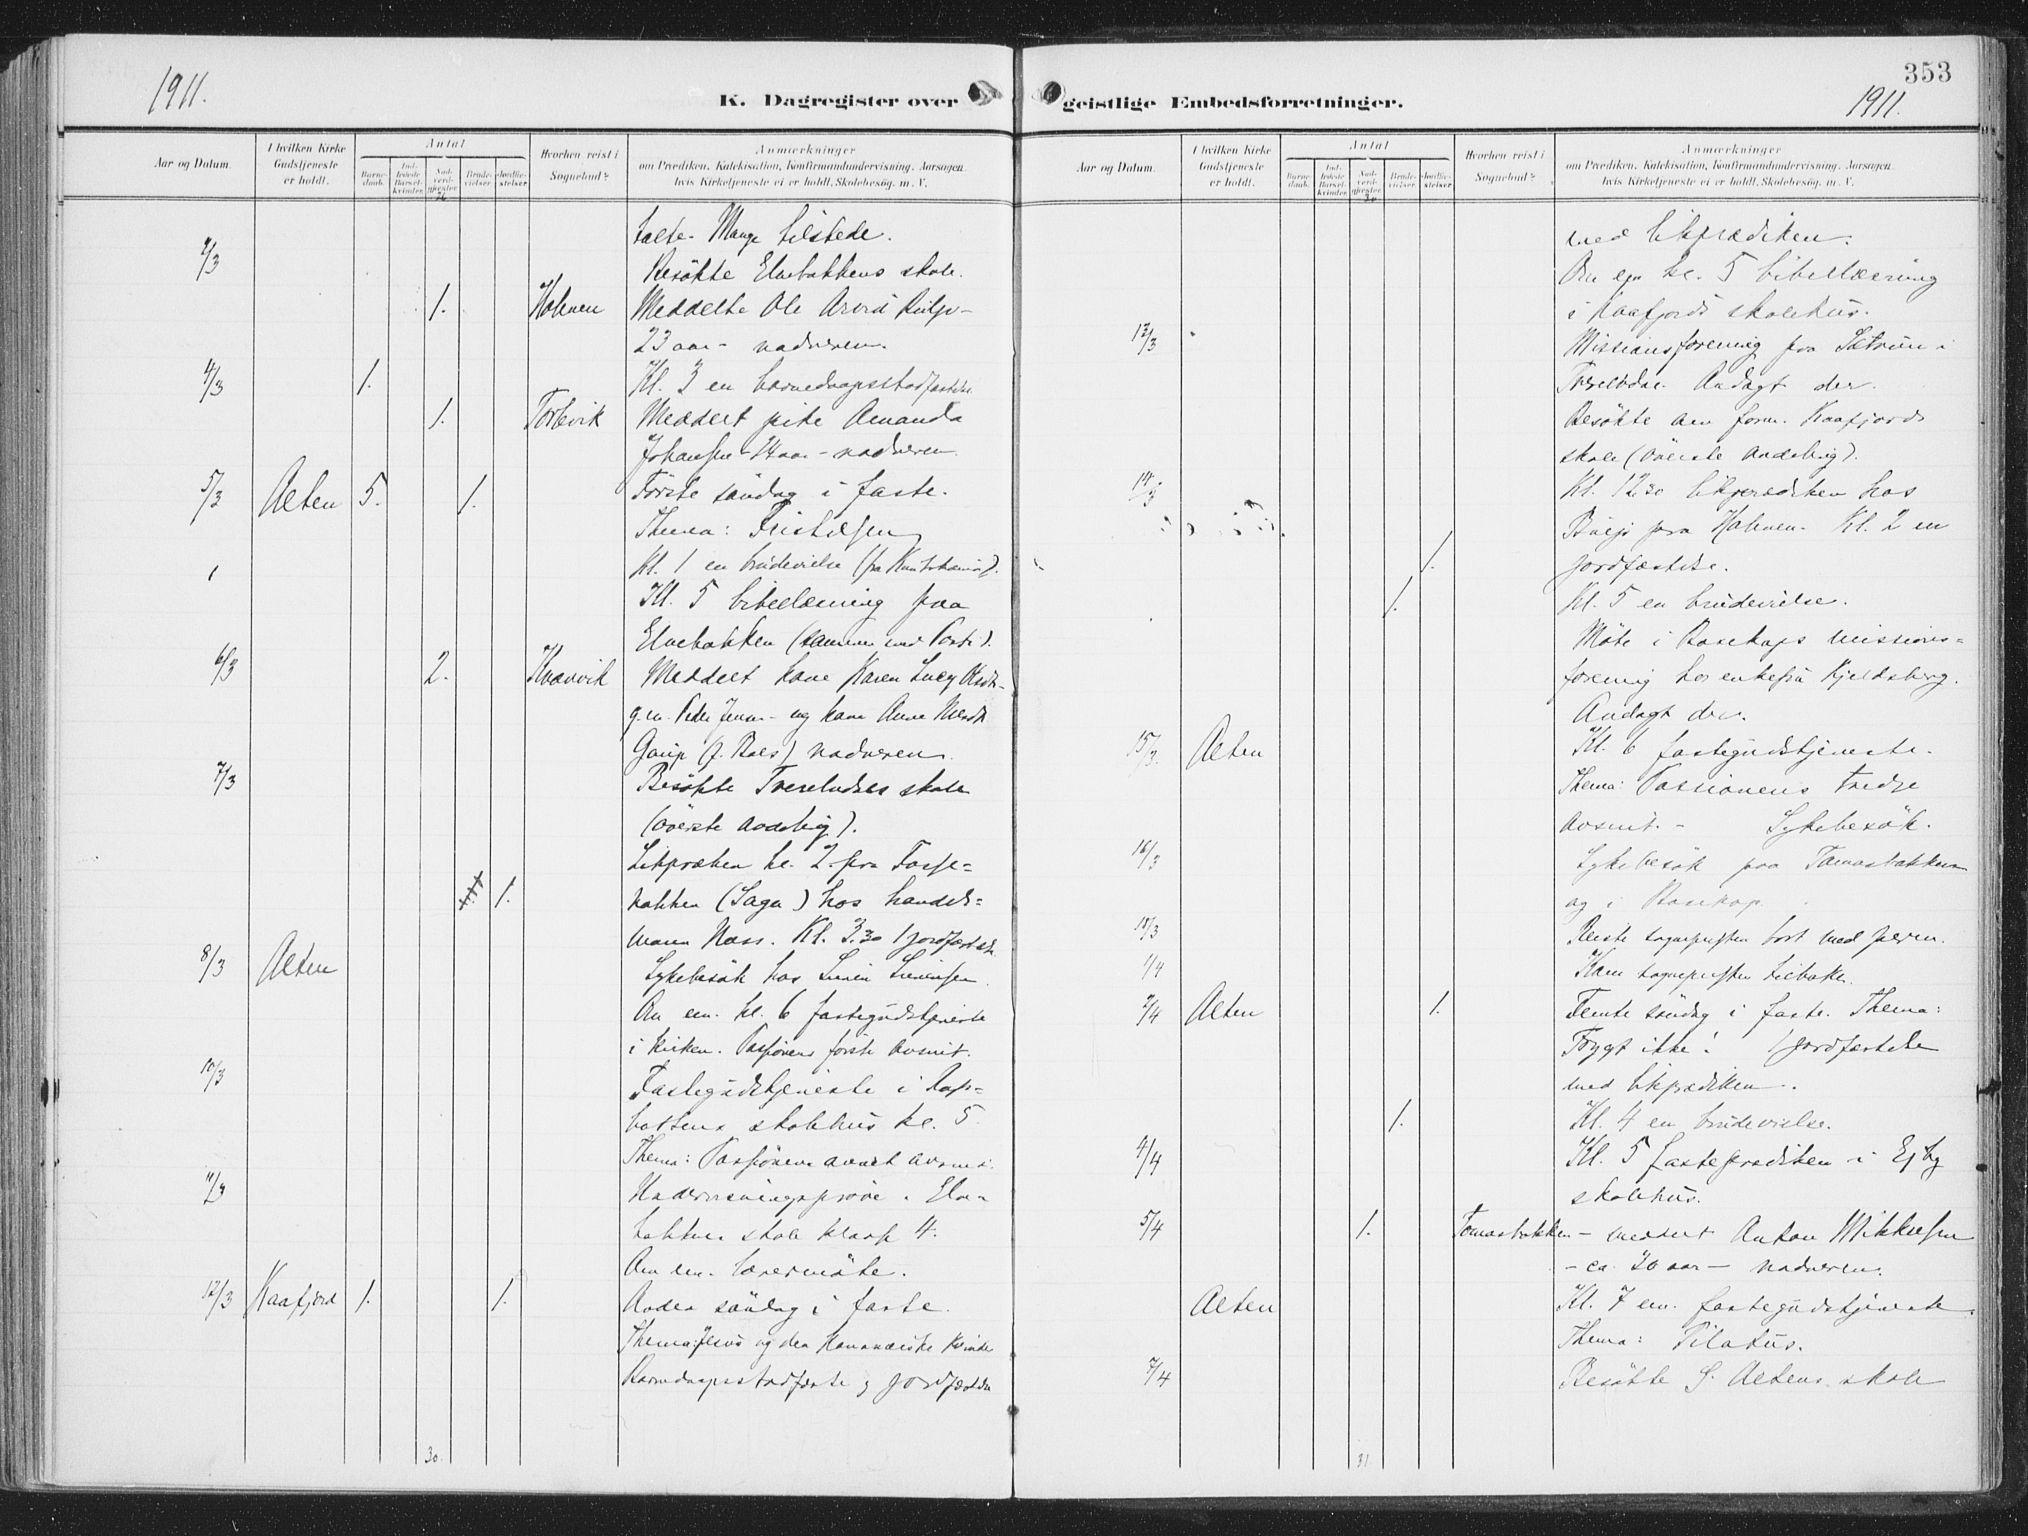 1911.
K. Dagregister over
Aar og Datum.
I hvilken Kirke
Gudstjeneste
er holdt.
Antal
Barne-
daab.
Ind-
ledede
Barsel-
kvinder.
Nad-
verd-
gjester
Brude-
vielser
Jordfæ-
stelser
Hvorhen reist i
Sognebud?
Anmærkninger
om Prædiken, Katekisation, Konfirmandundervisning, Aarsagen
hvis Kirketjeneste ei er holdt, Skolebesøg. m. V.
26
talte. Mange tilstede.
2/3
Besökte Elvebakkens skole.
1. Meddelte Ole
23 aar - nadveren.
4/3 1. Kl. 3 en barnedaapsstadfæstelse
1. Meddelt pike Amanda
Johansen - 14 aar - nadveren.
5/3 Alten 5. 1. Förste söndag i faste.
Thema: Fristelsen
Kl. 1 en brudevielse (fra
Kl. 5 bibellæsning paa
Elvebakken (sammen med
6/3 2. Kvænvik Meddelt kone Karen
g.m. Peder Jensen - og kone Anne
Gaup (f. ) nadveren.
7/3 Besökte Tverelvdalens skole
(överste avdeling).
Likpræken kl. 2 fra
1. bakken (Saga) hos handels=
mann Kl. 3.30 1 jordfæstelse
8/3 Alten Sykebesök hos
Om em. kl. 6 fastegudstjeneste
i kirken. Passionens første avsnit.
10/3 Fastegudstjeneste i Raf=
bottens skolehus kl. 5
Thema: Passionens annet avsnit.
11/3 Undervisningsprøve i Elve=
bakkens skole klasse 4.
Om em. lærermöte.
12/3 Kaafjord 1. 1. Anden söndag i faste.
Thema: Jesus og den kananæiske kvinde
Barnedaapsstadfæstelse og jordfæstelse
30
353
1911.
geistlige Embedsforretninger.
Aar og Datum.
I hvilken Kirke
Gudstjeneste
er holdt.
Antal
Barne-
daab.
Ind-
ledede
Barsel-
kvinder.
Nad-
verd-
gjester
Brude-
vielser
Jordfæ-
stelser
Hvorhen reist i
Sognebud?
Anmærkninger
om Prædiken, Katekisation, Konfirmandundervisning, Aarsagen
hvis Kirketjeneste ei er holdt, Skolebesøg. m. V.
30
med likprædiken.
Om em kl. 5 bibellæsning
i Kaafjords skolehus.
13/3 Missionsforening paa
Tverelvdal. Andagt der.
Besökte om form. Kaafjords
skole (överste avdeling).
14/3 Kl. 12.30 likprædiken hos
Kl. 2 en
1. jordfæstelse.
1. Kl. 5 en brudevielse.
Möte i Bosekops missions=
forening hos enkefru Kjeldsberg.
Andagt der.
15/3. Alten Kl. 6 fastegudstjeneste.
Thema: Passionens tredje
avsnit. - Sykebesök.
16/3 Sykebesök paa Tomasbakken
og i Bosekop.
18/3 Reiste sogneprsten bort med
1/4 Kom sogneprsten tilbake.
2/4 Alten 1. Femte söndag i faste. Thema:
Frygt ikke! 1 jordfæstelse
med likprædiken.
1. Kl. 4 en brudevielse.
4/4 Kl. 5 fasteprædiken i Ejby
skolehus.
5/4 1. Tomasbakken - meddelt Anton Mikkelsen
- ca. 20 aar - nadveren.
Alten Kl. 7 em. fastegudstjeneste.
Thema: Pilatus.
7/4 Besökte S. Altens skole
31